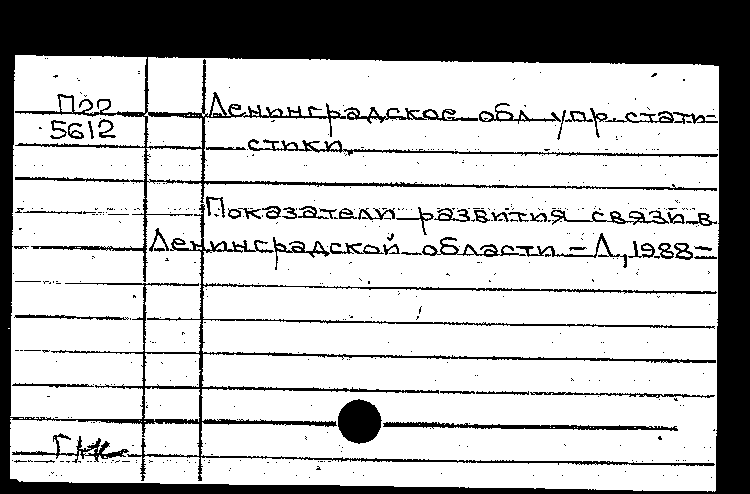 П22
5612
Ленинградское обл упр. стати-
стики.
Показатели развития связи в
Ленинградской области – Л, 1988–